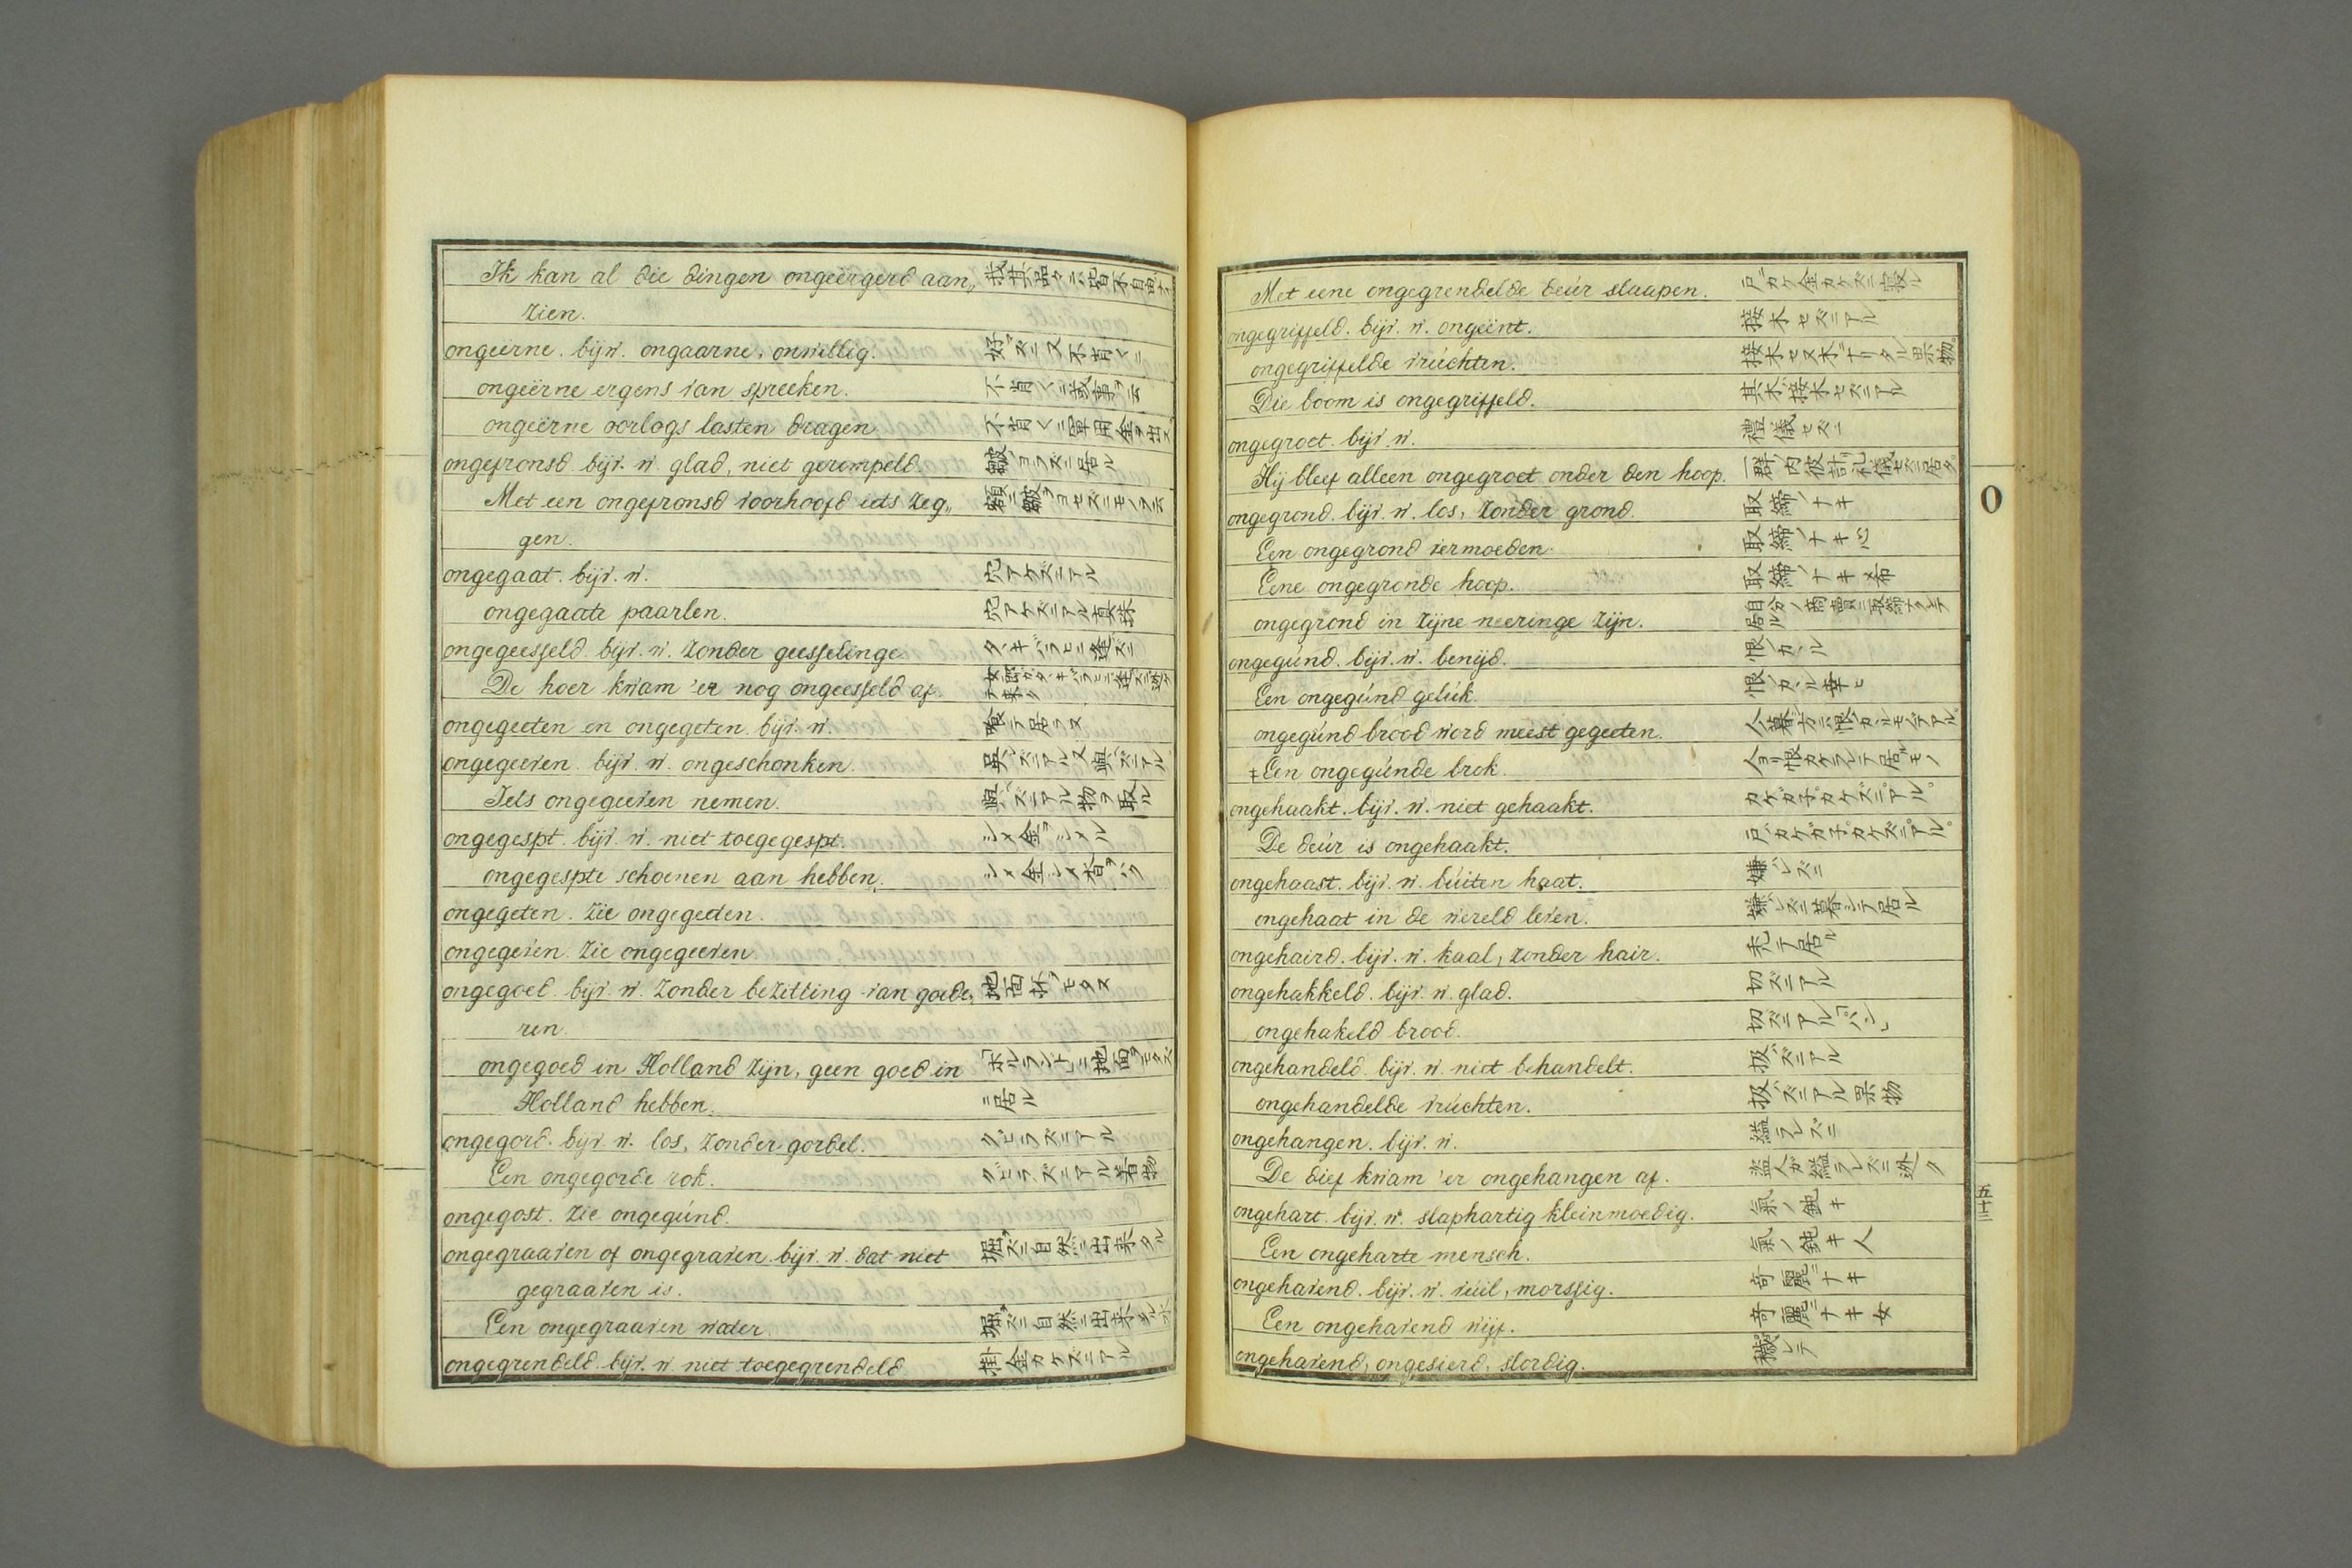 Ik kan al die dingen ongeërgerd aan„
zien.
ongeërne. bijw. ongaarne, onwillig.
ongeërne ergens van spreeken. 不肯くニ或事ヲ云
ongeërne oorlogs lasten dragen 不肯くニ軍用金ヲ出ス
ongefronsd. bijv. w. glad, niet gerimpeld. 皺ヨラズニ居ル
Met een ongefronsd voorhoofd iets zeg„ 額ニ皺ヲヨセズニモノヲ云
gen.
ongegaat. bijv. w. 穴アケズニアル
ongegaate paarlen. 穴アケズニアル真珠
ongegeesseld. bijv. w. zonder geesselinge
De hoer kwam 'er nog ongeesseld af.
ongegeeten en ongegeten. bijv. w. 喰テ居ラヌ
ongegeeven. bijv. w. ongeschonken.
Iets ongegeeven nemen. 與ズニアル物ヲ取ル
ongegespt. bijv. w. niet toegegespt.
ongegespte schoenen aan hebben.
ongegeten. zie ongegeeten.
ongegeven. zie ongegeeven.
ongegoed. bijv. w. zonder bezitting van goede„ 地面抔ヲモタヌ
ren.
ongegoed in Holland zijn, geen goed in 「ホルランド」ニ地面ヲモタズ
Holland hebben. ニ居ル
ongegord. bijv. w. los, zonder gordel. クビラズニアル
Een ongegorde rok. クビラズニアル着物
ongegost. zie ongegúnd.
ongegraaven of ongegraven. bijv. w. dat niet 掘ラズニ自然ニ出来タル
gegraaven is.
Een ongegraaven water. 掘ラズニ自然ニ出来タル水
ongegrendeld. bijv. w. niet toegegrendeld 掛金カケズニアル
Met eene ongegrendelde deúr slaapen. 戸ガケ金カケズニ寝ル
ongegriffeld. bijv. w. ongeënt. 接木セズニアル
ongegriffelde vrúchten. 接木セヌ木ニナリタル果物。
Die boom is ongegriffeld. 其木接木セズニアル
ongegroet. bijv. w. 禮儀セズニ
Hij bleef alleen ongegroet onder den hoop. 一群ノ内彼計リ礼儀セズニ居タ。
ongegrond. bijv. w. los, zonder grond. 取締ノナキ
Een ongegrond vermoeden. 取締ノナキ心
Eene ongegronde hoop. 取締ノナキ希
ongegrond in zijne neeringe zijn. 自分ノ商賣ニ取締ナクシテ居ル
ongegúnd. bijv. w. benijd. 恨ノカヽル
Een ongegúnd gelúk. 恨ノカヽル幸ヒ
ongegúnd brood word meest gegeeten.
‡Een ongegúnde brok.
ongehaakt. bijv. w. niet gehaakt. カケガ子カケズニアル。
De deúr is ongehaakt. 戸ハカケガ子カケズニアル。
ongehaast. bijv. w. búiten haat. 嫌レズニ
ongehaat in de wereld leven. 嫌レズニ暮シテ居ル
ongehaird. bijv. w. kaal, zonder hair. 禿テ居ル
ongehakkeld. bijv. w. glad. 切ズニアル
ongehakeld brood. 切ズニアル「パン」
ongehandeld. bijv. w. niet behandelt. 扱ズニアル
ongehandelde vrúchten. 扱ズニアル果物
ongehangen. bijv. w. 縊ラレズニ
De dief kwam 'er ongehangen af. 盗人ガ縊ラレズニ逃タ
ongehart. bijv. w. slaphartig kleinmoedig. 氣ノ鈍キ
Een ongeharte mensch. 氣ノ鈍キ人
ongehavend. bijv. w. vúil, morssig. 奇麗ニナキ
Een ongehavend wijf. 奇麗ニナキ女
ongehavend, ongesierd, slordig. 穢レテ
O
五十三